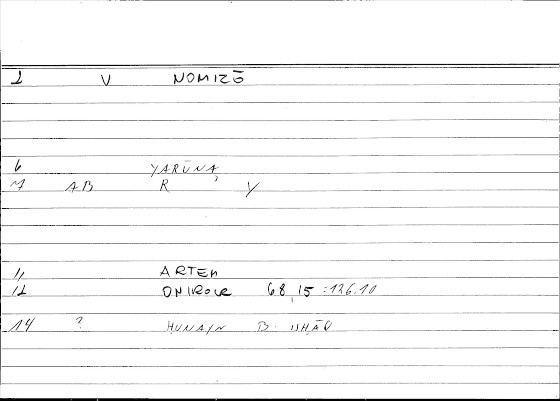 1 V NOMIZŌ
6 YARŪNA,
7 AB R Y
11 ARTEM
12 ONIROCR 68,15 : 126.10
14 ? HUNAIN B. ISHĀQ